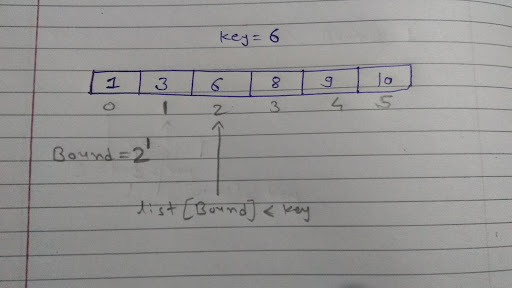 key = 6
1 3 6 8 9 10
0 1 2 3 4 5
Bound = 2¹
list [Bound] < key